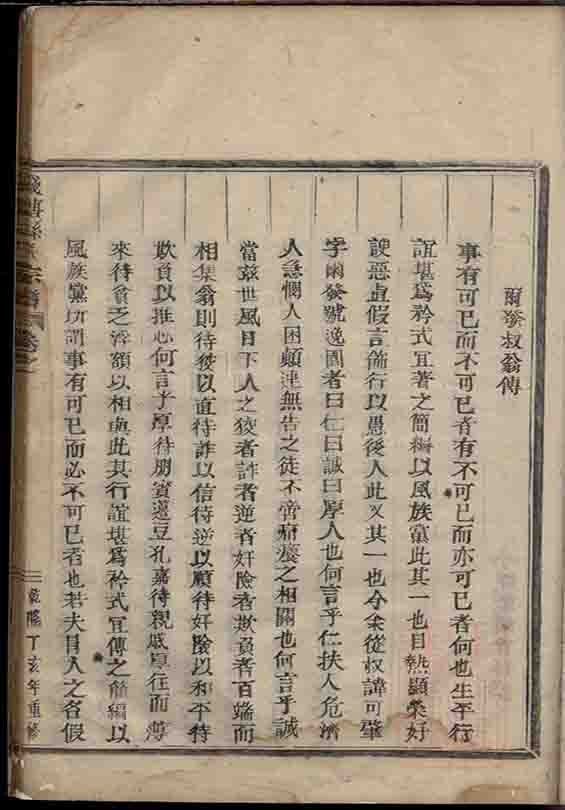 爾發叔翁傳
事有可已而不可已者有不可已而亦可已者何也生平行
誼堪爲矜式宜著之簡編以風族黨此其一也目熱顯榮好
諛惡直假言飾行以愚後人此又其一也今余從叔諱可肇
字爾發號逸園者曰仁曰誠曰厚人也何言乎仁扶人危濟
人急憫人困顛連無告之徒不啻痌瘝之相關也何言乎誠
當茲世風日下人之狡者詐者逆者奸險者欺負者百端而
相集翁則待狡以直待詐以信待逆以順待奸險以和平待
欺負以推心何言乎厚待朋賓籩豆孔嘉待親戚厚往而薄
來待貧乏溥額以相與此其行誼堪爲矜式宜傳之簡編以
風族黨所謂事有可已而必不可已者也若夫目人之名假
宗譜 卷之
乾隆丁亥年重修